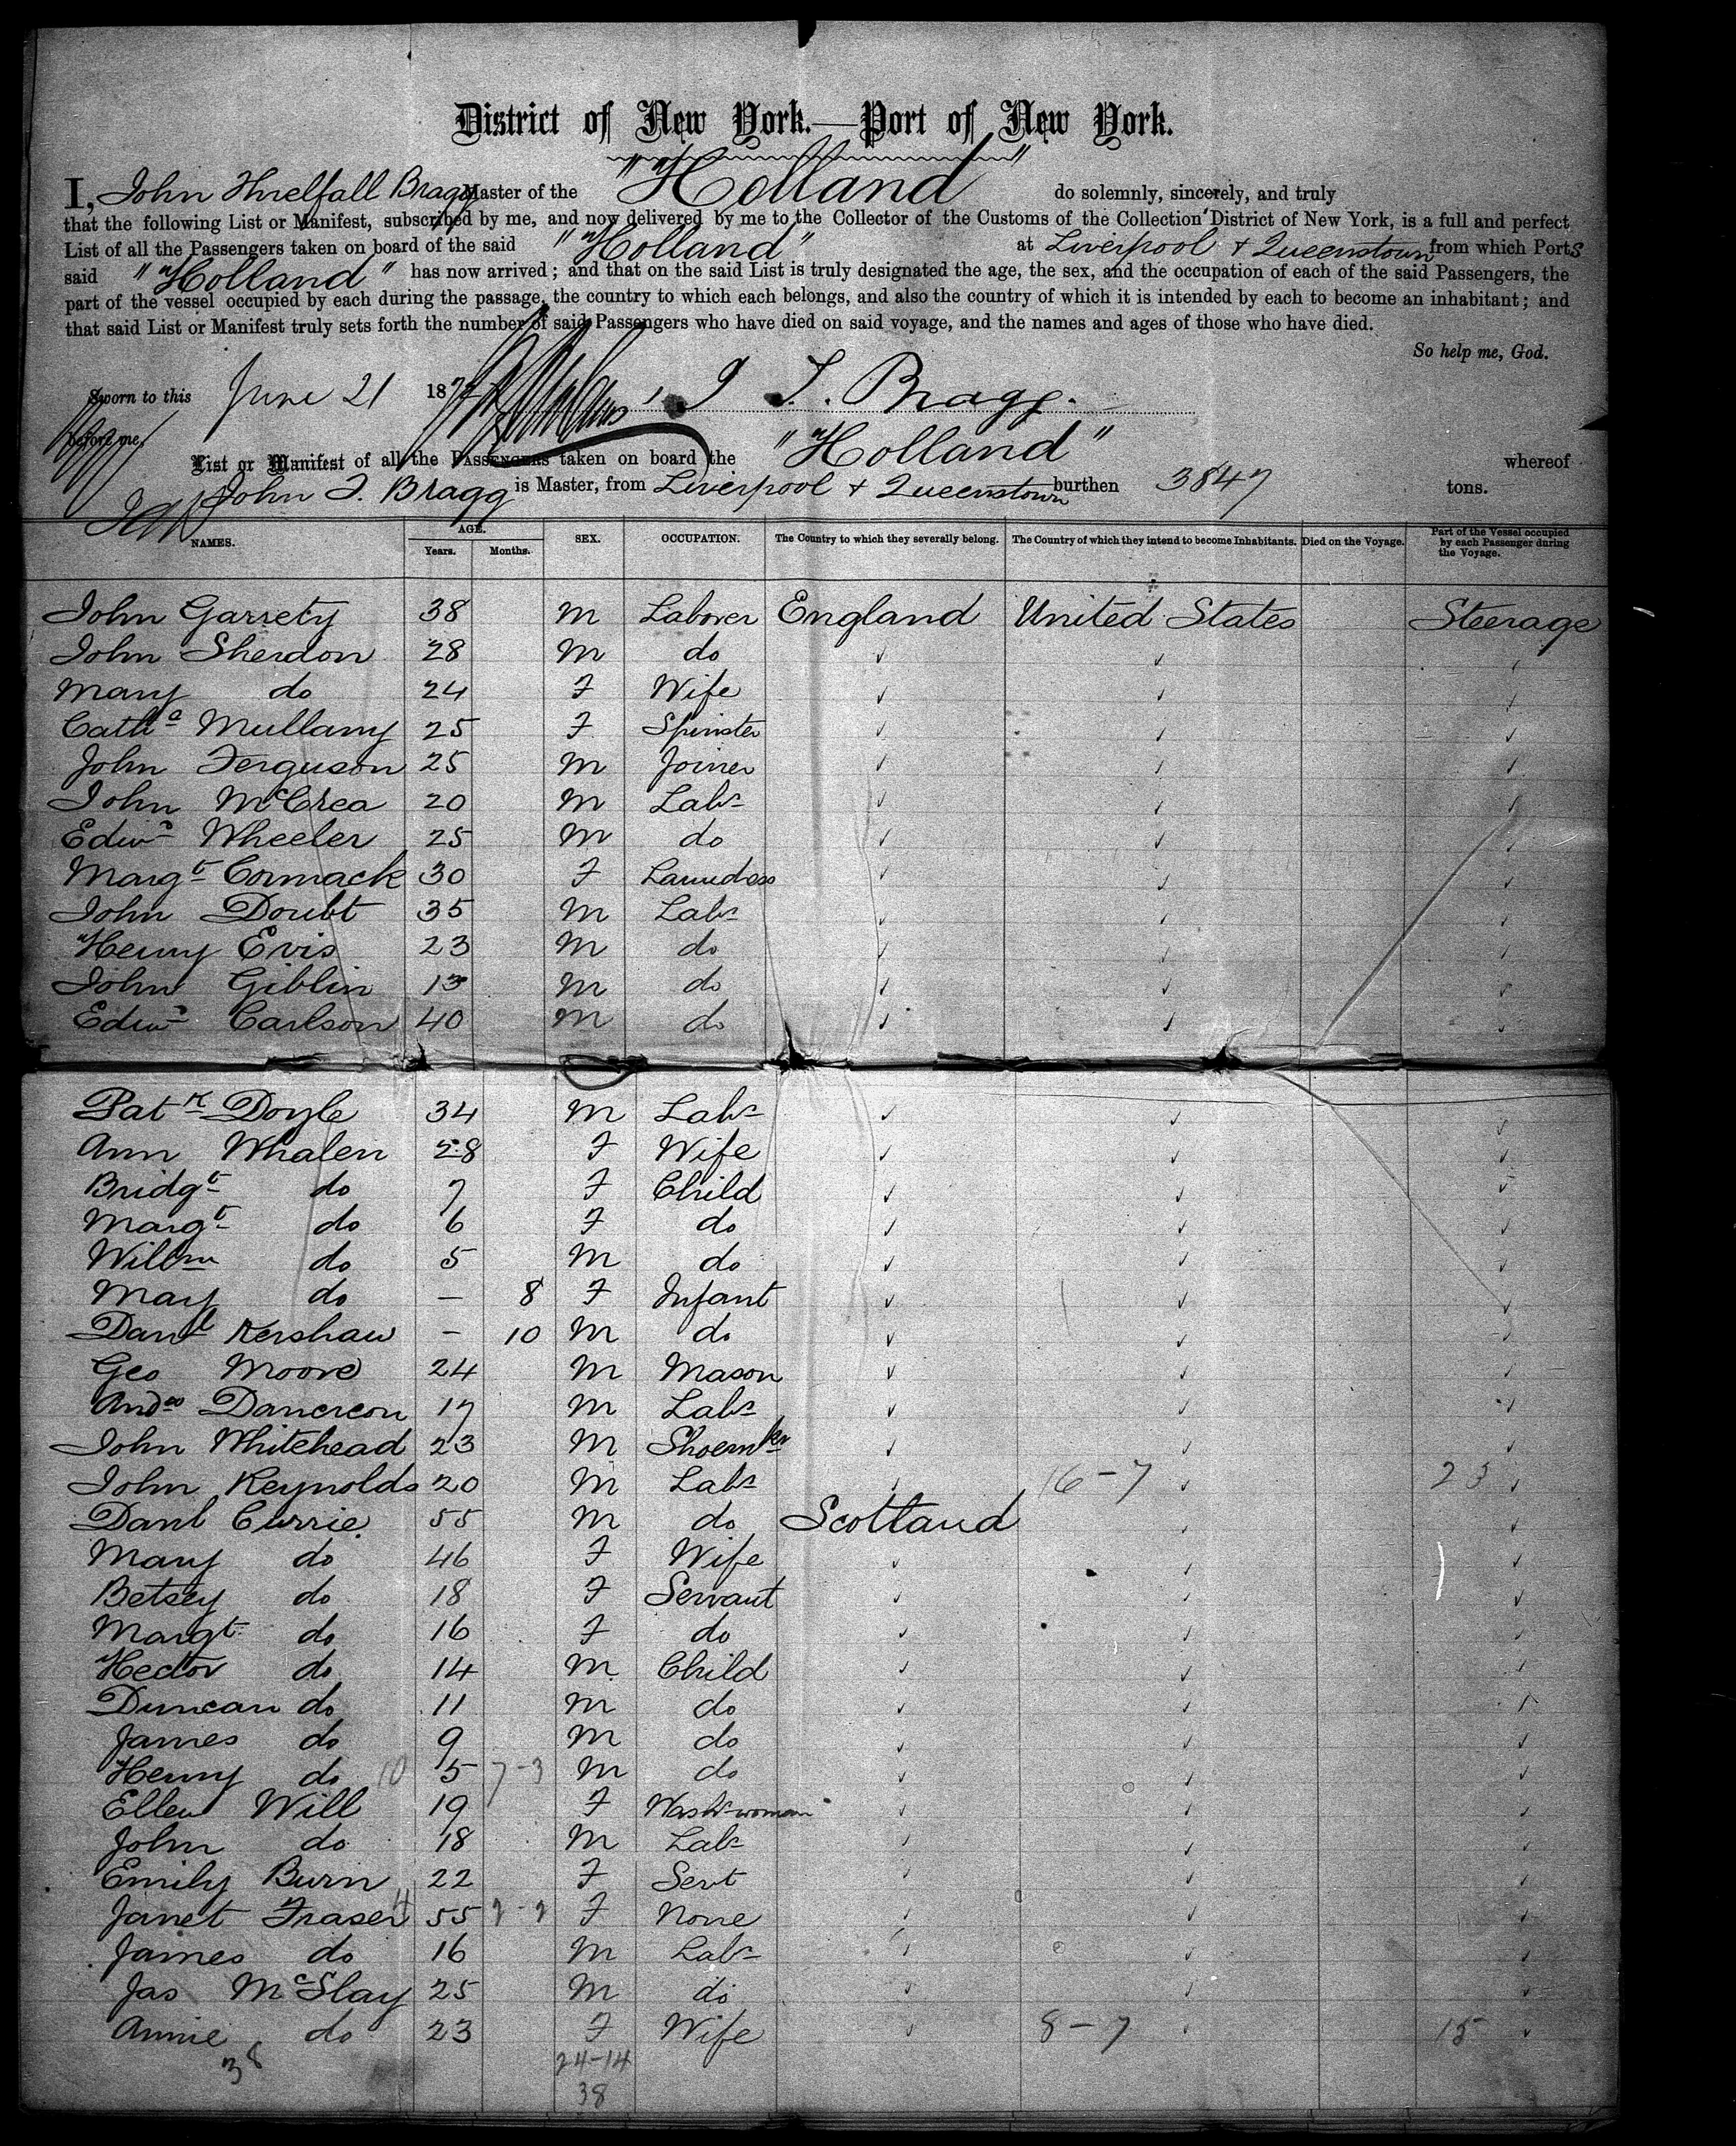 District of New York.—Port of New York.
I, John Threlfall Bragg Master of the "Holland" do solemnly, sincerely, and truly
that the following List or Manifest, subscribed by me, and now delivered by me to the Collector of the Customs of the Collection District of New York, is a full and perfect
List of all the Passengers taken on board of the said "Holland" at Liverpool & Queenstown from which Ports
said "Holland" has now arrived; and that on the said List is truly designated the age, the sex, and the occupation of each of the said Passengers, the
part of the vessel occupied by each during the passage, the country to which each belongs, and also the country of which it is intended by each to become an inhabitant; and
that said List or Manifest truly sets forth the number of said Passengers who have died on said voyage, and the names and ages of those who have died.
So help me, God.
Sworn to this June 21 187 J T. Bragg.
before me,
List or Manifest of all the Passengers taken on board the "Holland" whereof
John T. Bragg is Master, from Liverpool & Queenstown burthen 3847 tons.
NAMES. AGE. Years. Months. SEX. OCCUPATION. The Country to which they severally belong. The Country of which they intend to become Inhabitants. Died on the Voyage. Part of the Vessel occupied by each Passenger during the Voyage.
John Garrety 38 M Laborer England United States Steerage
John Sherdon 28 M do ✓ ✓ ✓
Mary do 24 F Wife ✓ ✓ ✓
Cathe Mullany 25 F Spinster ✓ ✓ ✓
John Ferguson 25 M Joiner ✓ ✓ ✓
John McCrea 20 M Labr ✓ ✓ ✓
Edwd Wheeler 25 M do ✓ ✓ ✓
Margt Cormack 30 F Laundess ✓ ✓ ✓
John Doubt 35 M Labr ✓ ✓ ✓
Henry Evis 23 M do ✓ ✓ ✓
John Giblin 13 M do ✓ ✓ ✓
Edwd Carlson 40 M do ✓ ✓ ✓
Patk Doyle 34 M Labr ✓ ✓ ✓
Ann Whalen 28 F Wife ✓ ✓ ✓
Bridgt do 7 F Child ✓ ✓ ✓
Margt do 6 F do ✓ ✓ ✓
Willm do 5 M do ✓ ✓ ✓
Mary do — 8 F Infant ✓ ✓ ✓
Danl Kershaw — 10 M do ✓ ✓ ✓
Geo Moore 24 M Mason ✓ ✓ ✓
Andw Danereon 17 M Labr ✓ ✓ ✓
John Whitehead 23 M Shoemkr ✓ ✓ ✓
John Reynolds 20 M Labr ✓ 16-7 ✓ 23 ✓
Danl Currie 55 M do Scotland ✓ ✓
Mary do 46 F Wife ✓ ✓ ✓
Betsey do 18 F Servant ✓ ✓ ✓
Margt do 16 F do ✓ ✓ ✓
Hector do 14 M Child ✓ ✓ ✓
Duncan do 11 M do ✓ ✓ ✓
James do 9 M do ✓ ✓ ✓
Henry do 10 5 7-3 M do ✓ ✓ ✓
Ellen Will 19 F Wash-woman ✓ ✓ ✓
John do 18 M Labr ✓ ✓ ✓
Emily Burn 22 F Servt ✓ ✓ ✓
Janet Fraser 4 55 2-2 F None ✓ ✓ ✓
James do 16 M Labr ✓ ✓ ✓
Jas McSlay 25 M do ✓ ✓ ✓
Annie do 23 F Wife ✓ 8-7 ✓ 15 ✓
38 24-14
38